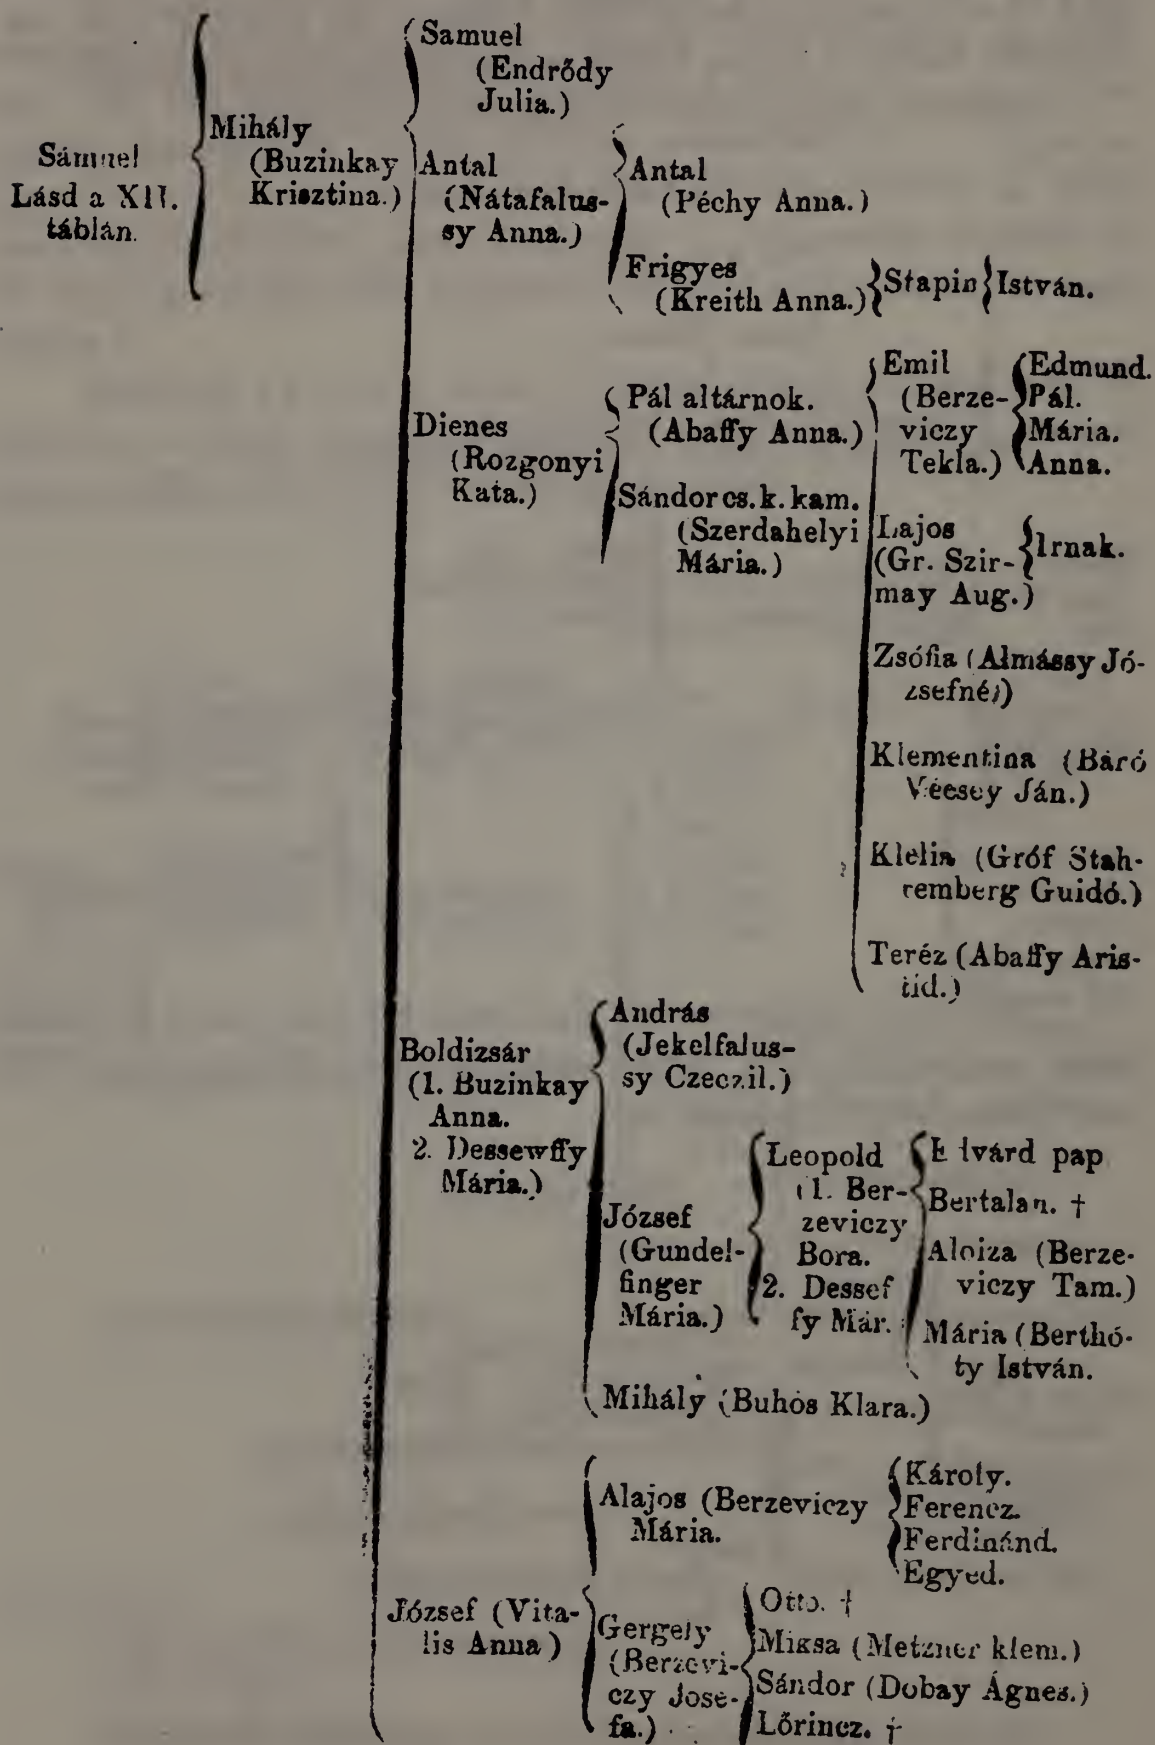 Sámuel
Lásd a XII.
táblán.
Mihály
(Buzinkay
Krisztina.)
Samuel
(Endrődy
Julia.)
Antal
(Nátafalus-
sy Anna.)
Antal
(Péchy Anna.)
Frigyes
(Kreith Anna.)
Stapin
István.
Dienes
(Rozgonyi
Kata.)
Pál altárnok.
(Abaffy Anna.)
Sándor cs. k. kam.
(Szerdahelyi
Mária.)
Emil
(Berze-
viczy
Tekla.)
Edmund.
Pál.
Mária.
Anna.
Lajos
(Gr. Szir-
may Aug.)
Irnak.
Zsófia (Almássy Jó-
zsefné)
Klementina (Báró
Vécsey Ján.)
Klelia (Gróf Stah-
remberg Guidó.)
Teréz (Abaffy Aris-
tid.)
Boldizsár
(1. Buzinkay
Anna.
2. Dessewffy
Mária.)
András
(Jekelfalus-
sy Czeczil.)
József
(Gundel-
finger
Mária.)
Leopold
(1. Ber-
zeviczy
Bora.
2. Dessef
fy Már.
Edvárd pap
Bertalan. †
Aloiza (Berze-
viczy Tam.)
Mária (Berthó-
ty István.
Mihály (Buhos Klara.)
József (Vita-
lis Anna)
Alajos (Berzeviczy
Mária.
Károly.
Ferencz.
Ferdinánd.
Egyed.
Gergely
(Berzevi-
czy Jose-
fa.)
Otto. †
Miksa (Metzner klem.)
Sándor (Dobay Ágnes.)
Lőrincz. †